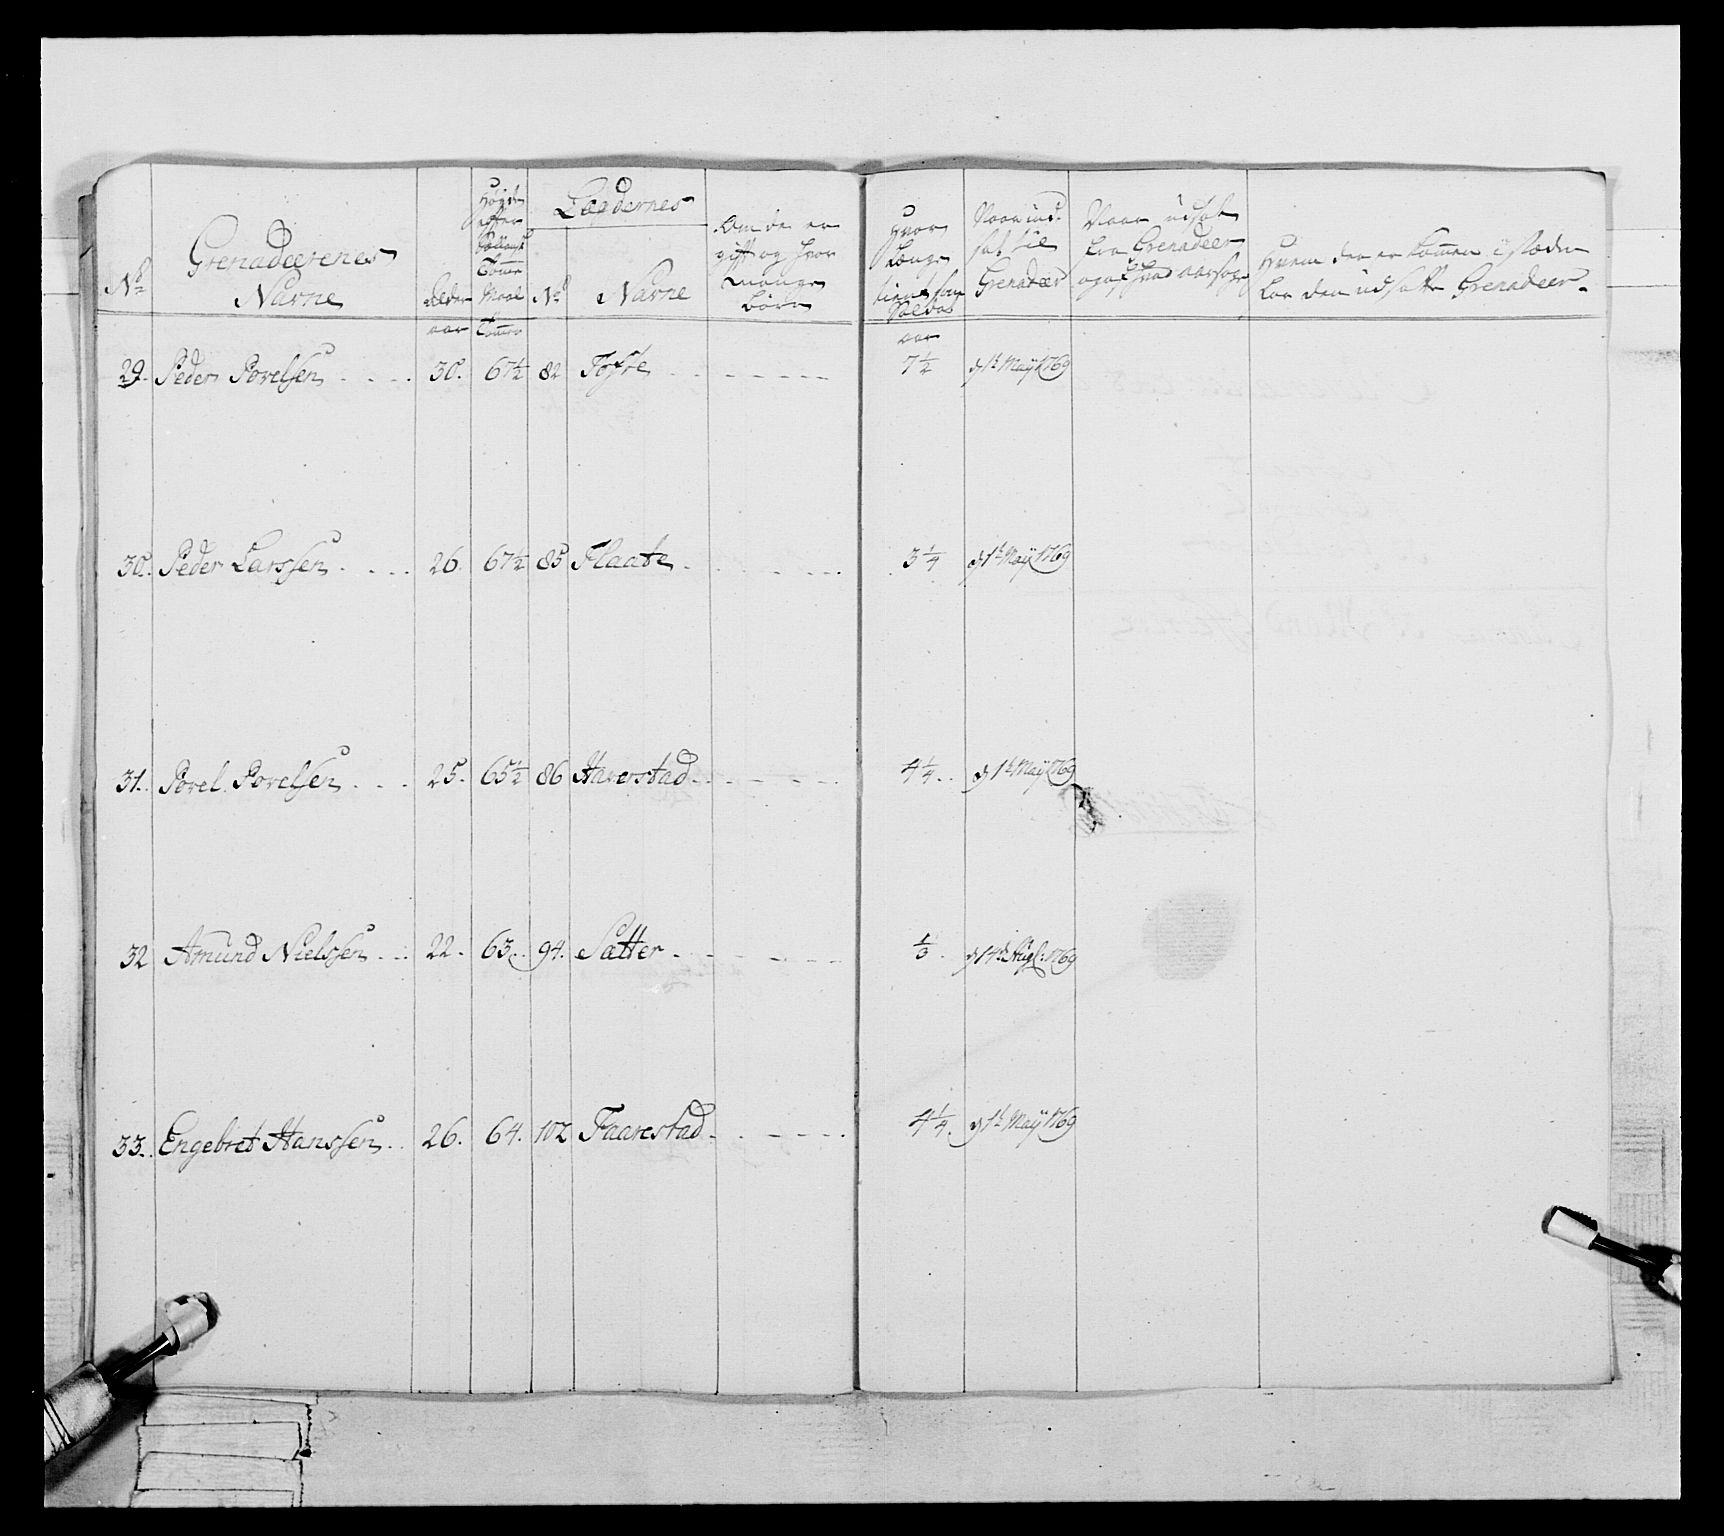 No
Grenadeerenes
Navne
Alder
aar
Høyde
efter
Tomme
Maal
Tommer
Lægdernes
No
Navne
Om de er
gift og hvor
mange
børn
Hvor
Længe
tient for
Soldat
aar
Naar ind-
sat til
Grenadeer
Naar udsat
fra Grenadeer
og af hvad aarsage
Hvem der er kommen i stæden
for den udsatte Grenadeer.
29. Peder Povelsen 30. 67½ 82 Tofte 7½ d 1t May 1769
30. Peder Larssen 26. 67½ 85 Flaate 3¼ d 1t May 1769
31. Povel Povelsen 25. 65½ 86 Haverstad 4¼ d 1t May 1769
32 Amund Nielssen 22. 63. 94. Sætter ⅓ d 14de Aug: 1769
33. Engebret Hanssen 26. 64. 102 Faarestad 4¼ d 1t May 1769